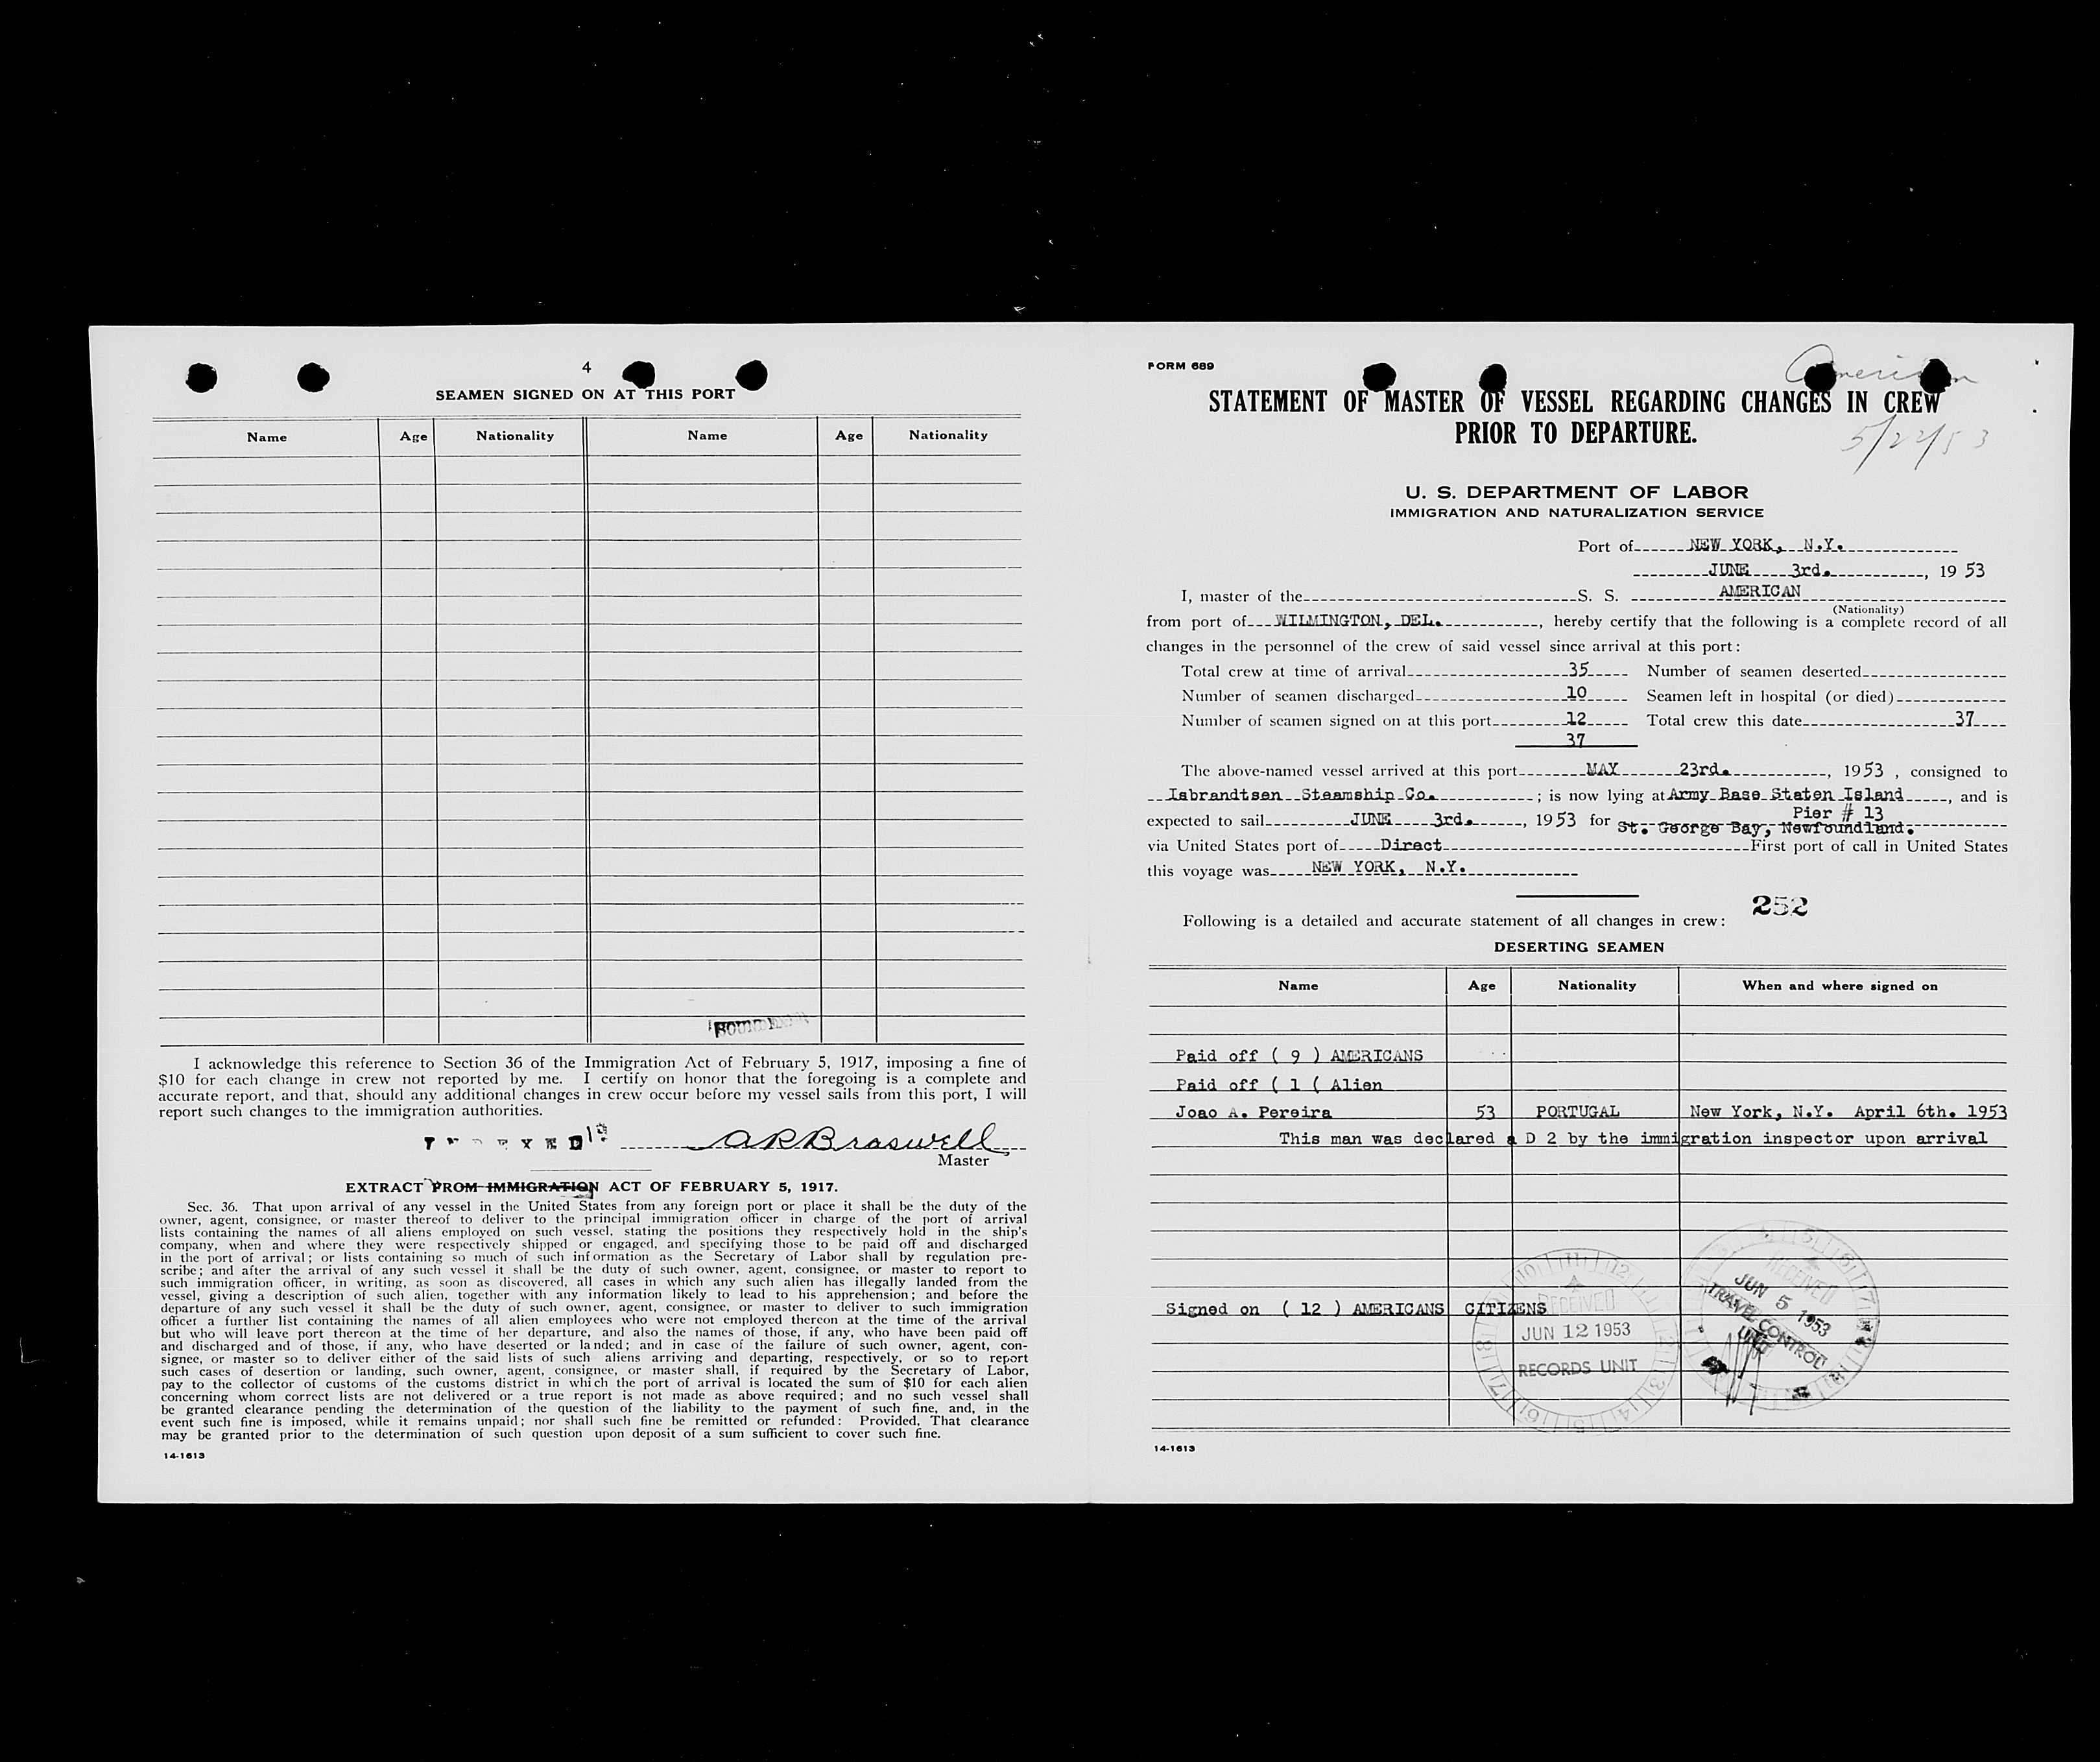 4
SEAMEN SIGNED ON AT THIS PORT
Name Age Nationality Name Age Nationality
I acknowledge this reference to Section 36 of the Immigration Act of February 5, 1917, imposing a fine of
$10 for each change in crew not reported by me. I certify on honor that the foregoing is a complete and
accurate report, and that, should any additional changes in crew occur before my vessel sails from this port, I will
report such changes to the immigration authorities.
A R Braswell
Master
EXTRACT FROM IMMIGRATION ACT OF FEBRUARY 5, 1917.
Sec. 36. That upon arrival of any vessel in the United States from any foreign port or place it shall be the duty of the
owner, agent, consignee, or master thereof to deliver to the principal immigration officer in charge of the port of arrival
lists containing the names of all aliens employed on such vessel, stating the positions they respectively hold in the ship's
company, when and where they were respectively shipped or engaged, and specifying those to be paid off and discharged
in the port of arrival; or lists containing so much of such information as the Secretary of Labor shall by regulation pre-
scribe; and after the arrival of any such vessel it shall be the duty of such owner, agent, consignee, or master to report to
such immigration officer, in writing, as soon as discovered, all cases in which any such alien has illegally landed from the
vessel, giving a description of such alien, together with any information likely to lead to his apprehension; and before the
departure of any such vessel it shall be the duty of such owner, agent, consignee, or master to deliver to such immigration
officer a further list containing the names of all alien employees who were not employed thereon at the time of the arrival
but who will leave port thereon at the time of her departure, and also the names of those, if any, who have been paid off
and discharged and of those, if any, who have deserted or landed; and in case of the failure of such owner, agent, con-
signee, or master so to deliver either of the said lists of such aliens arriving and departing, respectively, or so to report
such cases of desertion or landing, such owner, agent, consignee, or master shall, if required by the Secretary of Labor,
pay to the collector of customs of the customs district in which the port of arrival is located the sum of $10 for each alien
concerning whom correct lists are not delivered or a true report is not made as above required; and no such vessel shall
be granted clearance pending the determination of the question of the liability to the payment of such fine, and, in the
event such fine is imposed, while it remains unpaid; nor shall such fine be remitted or refunded: Provided, That clearance
may be granted prior to the determination of such question upon deposit of a sum sufficient to cover such fine.
14-1613
FORM 689
American
STATEMENT OF MASTER OF VESSEL REGARDING CHANGES IN CREW
PRIOR TO DEPARTURE.
5/22/53
U. S. DEPARTMENT OF LABOR
IMMIGRATION AND NATURALIZATION SERVICE
Port of NEW YORK, N.Y.
JUNE 3rd., 1953
I, master of the S. S. AMERICAN
(Nationality)
from port of WILMINGTON, DEL., hereby certify that the following is a complete record of all
changes in the personnel of the crew of said vessel since arrival at this port:
Total crew at time of arrival 35 Number of seamen deserted
Number of seamen discharged 10 Seamen left in hospital (or died)
Number of seamen signed on at this port 12 Total crew this date 37
37
The above-named vessel arrived at this port MAY 23rd., 1953, consigned to
Isbrandtsen Steamship Co.; is now lying at Army Base Staten Island, and is
Pier # 13
expected to sail JUNE 3rd., 1953 for St. George Bay, Newfoundland.
via United States port of Direct First port of call in United States
this voyage was NEW YORK, N.Y.
252
Following is a detailed and accurate statement of all changes in crew:
DESERTING SEAMEN
Name Age Nationality When and where signed on
Paid off ( 9 ) AMERICANS
Paid off ( 1 ( Alien
Joao A. Pereira 53 PORTUGAL New York, N.Y. April 6th. 1953
This man was declared a D 2 by the immigration inspector upon arrival
Signed on ( 12 ) AMERICANS CITIZENS
RECEIVED
JUN 12 1953
RECORDS UNIT
RECEIVED
JUN 5 1953
TRAVEL CONTROL
UNIT
14-1613